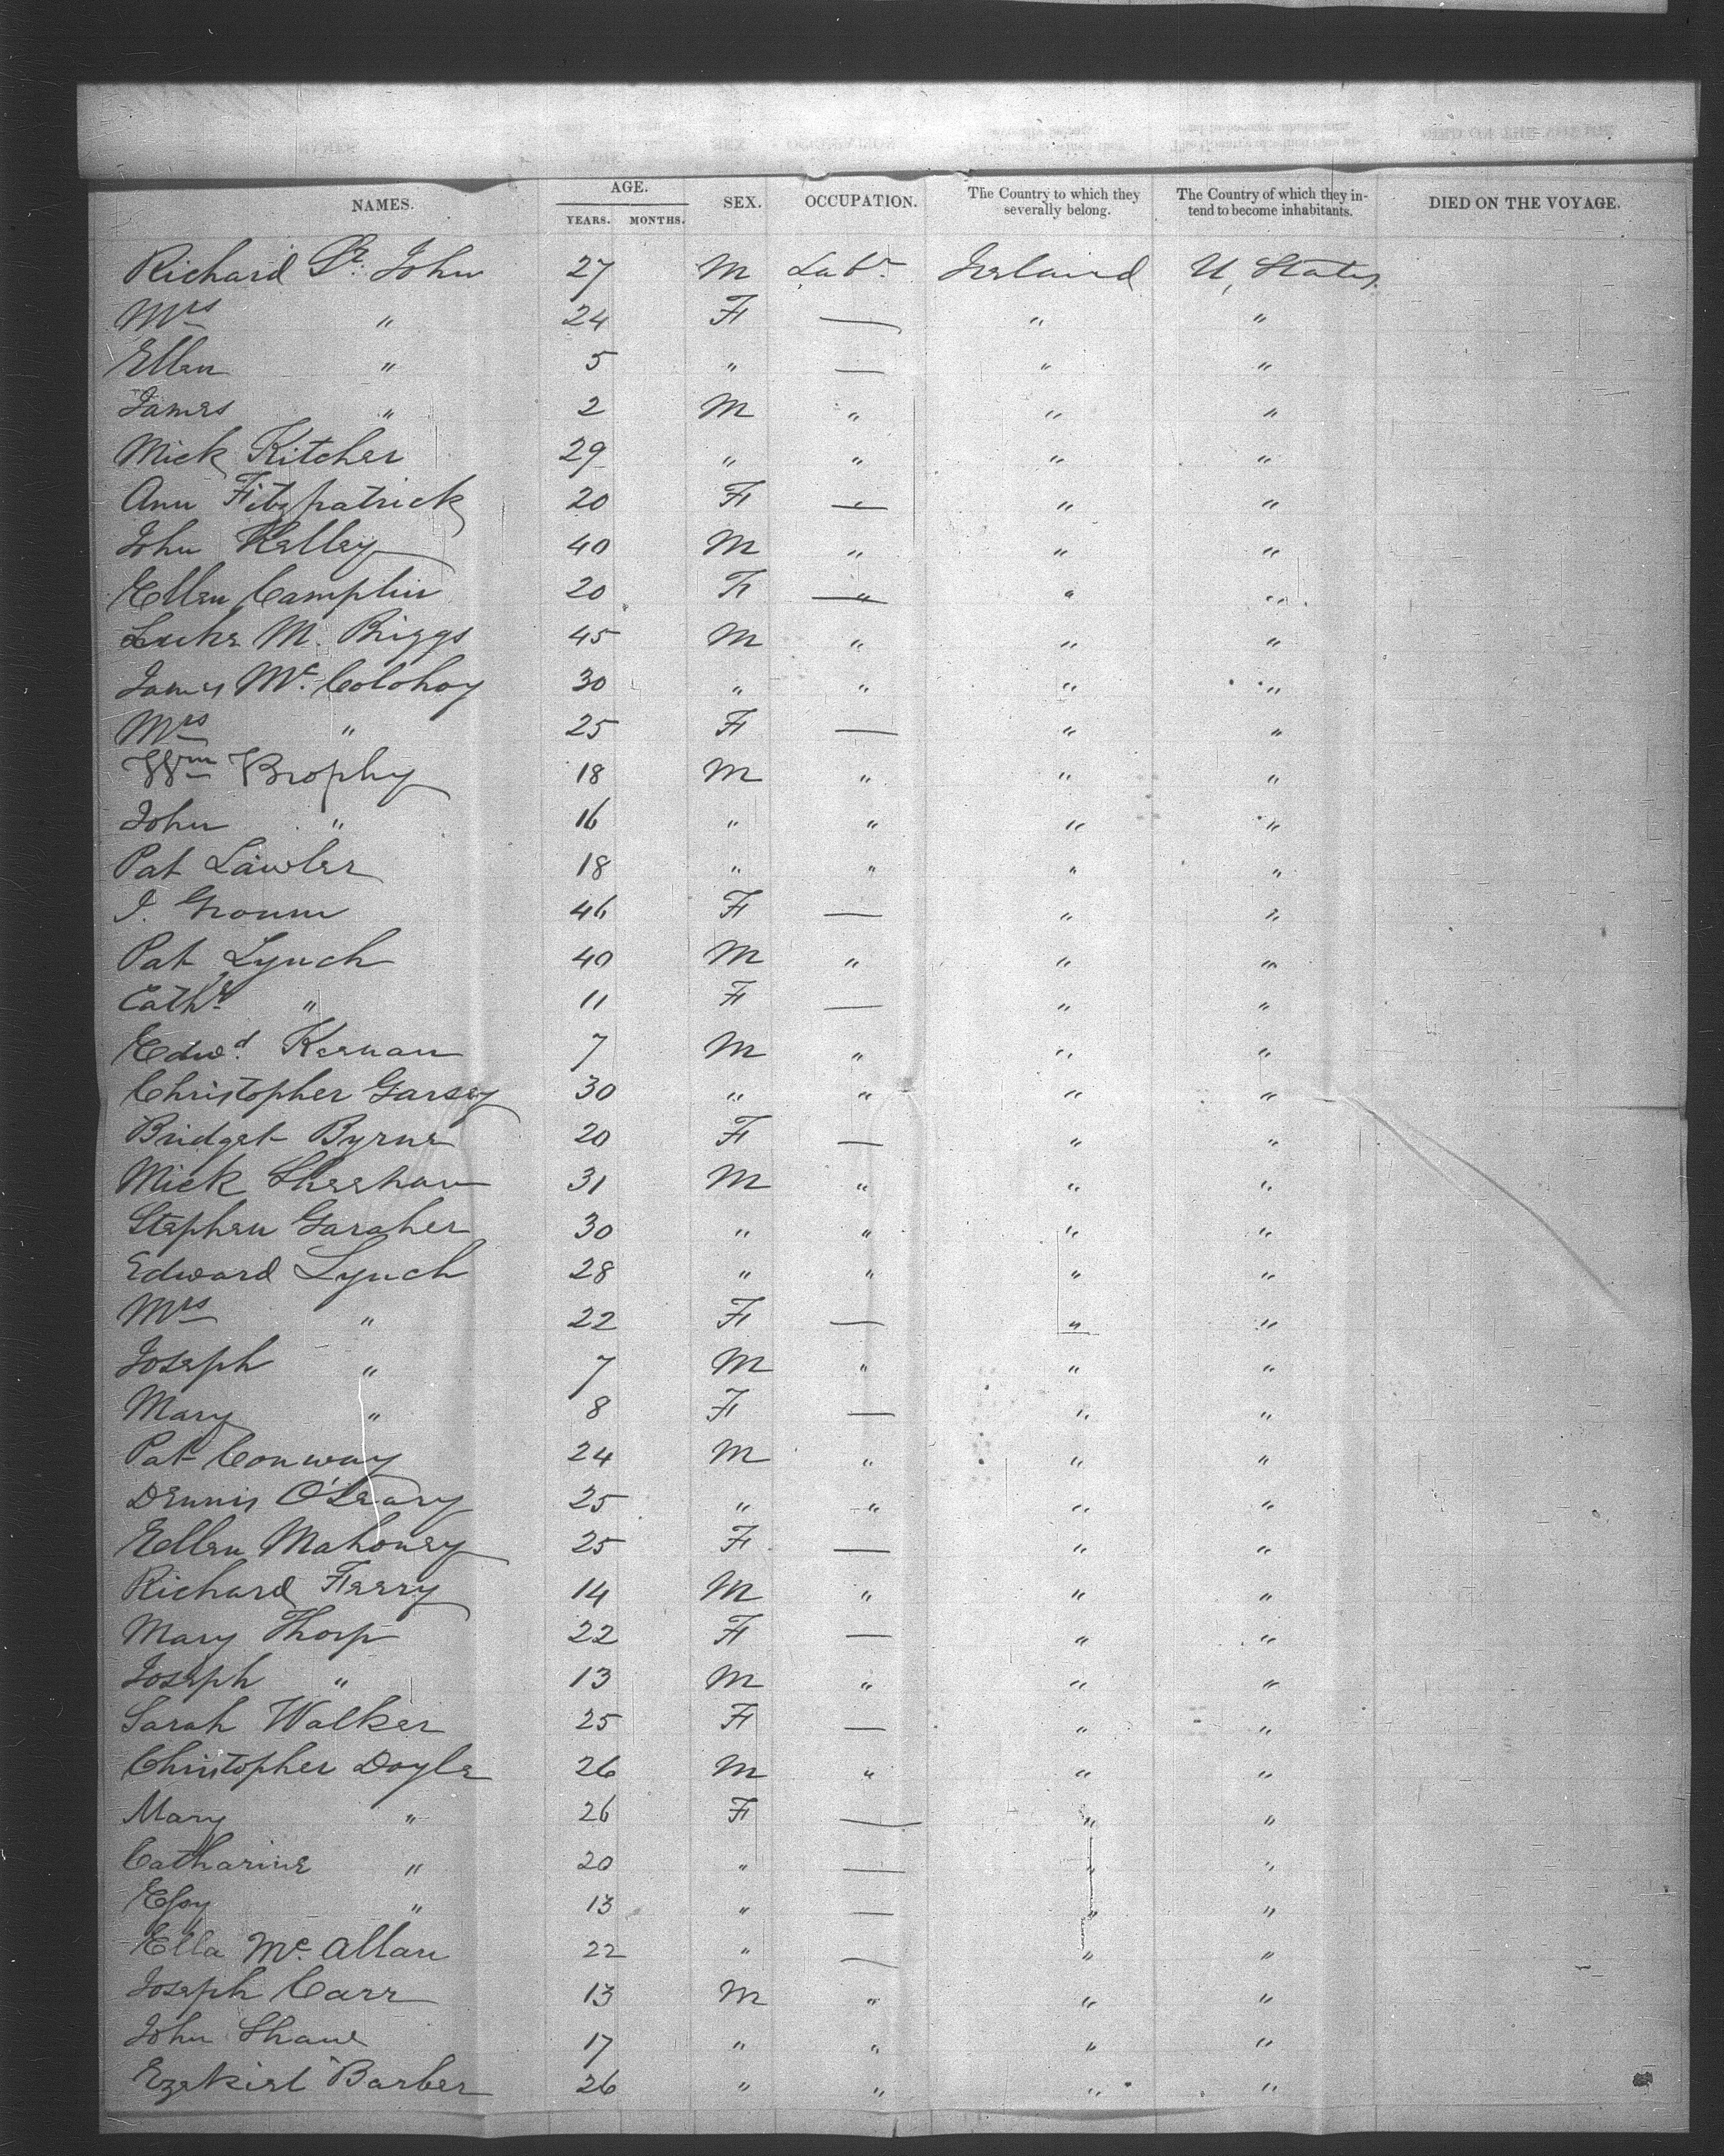 NAMES. AGE. YEARS. MONTHS. SEX. OCCUPATION. The Country to which they severally belong. The Country of which they intend to become inhabitants. DIED ON THE VOYAGE.
Richard St. John 27 M Labr Ireland U, States
Mrs " 24 F — " "
Ellen " 5 " — " "
James " 2 M " " "
Mick Kitcher 29 " " " "
Ann Fitzpatrick 20 F — " "
John Kelley 40 M " " "
Ellen Camplin 20 F — " "
Luke M. Briggs 45 M " " "
James Mc. Colohoy 30 " " " "
Mrs " 25 F — " "
Wm Brophy 18 M " " "
John " 16 " " " "
Pat Lawler 18 " " " "
J. Groum 46 F — " "
Pat Lynch 40 M " " "
Cathe " 11 F — " "
Edwd. Kernan 7 M " " "
Christopher Garsey 30 " " " "
Bridget Byrne 20 F — " "
Mick Sheehan 31 M " " "
Stephen Garaher 30 " " " "
Edward Lynch 28 " " " "
Mrs " 22 F — " "
Joseph " 7 M " " "
Mary " 8 F — " "
Pat Conway 24 M " " "
Dennis O'Leary 25 " " " "
Ellen Mahoney 25 F — " "
Richard Feery 14 M " " "
Mary Thorp 22 F — " "
Joseph " 13 M " " "
Sarah Walker 25 F — " "
Christopher Doyle 26 M " " "
Mary " 26 F — " "
Catharine " 20 " — " "
" 13 " — " "
Ella Mc. Allan 22 " — " "
Joseph Carr 13 M " " "
John Shaue 17 " " " "
Ezekiel Barber 26 " " " "